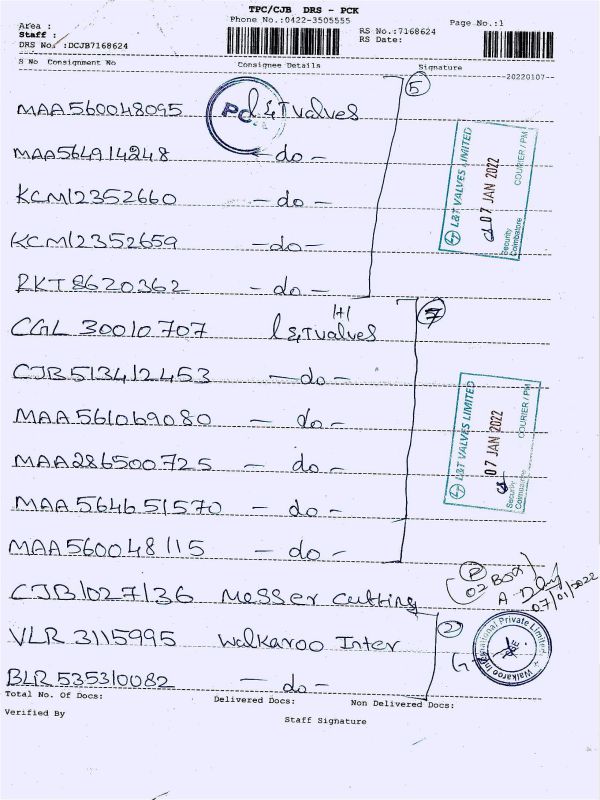 TPC/CJB DRS - PCK
Phone No.:0422-3505555
Page No.:1
Area :
Staff :
RS No.:7168624
DRS No. :DCJB7168624
RS Date:
S No Consignment No Consignee Details Signature
20220107
MAA560048095 L&T valves
5
PC
MAA564914248 - do -
KCM12352660 - do -
KCM12352659 - do -
RKT8620362 - do -
L&T VALVES LIMITED
07 JAN 2022
Security COURIER / PM
Coimbatore
1+1
CGL 30010707 L&T valves
7
CJB513412453 - do -
MAA561069080 - do -
MAA286500725 - do -
MAA564651570 - do -
MAA560048115 - do -
L&T VALVES LIMITED
07 JAN 2022
Security COURIER / PM
Coimbatore
P
02 Box
07/01/2022
CJB1027136 Messer cutting
VLR 3115995 Walkaroo Inter
2
BLR 535310082 - do -
Walkaroo International Private Limited
Total No. Of Docs: Delivered Docs: Non Delivered Docs:
Verified By
Staff Signature